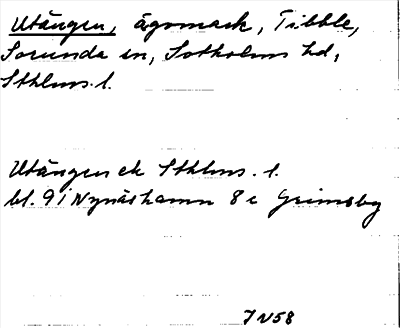 Utängen, ägomark, Tibble,
Sorunda sn, Sotholms hd,
Sthlms l.
Utängen ek Sthlms. l.
bl. 91 Nynäshamn 8 c Grimsby
JN58